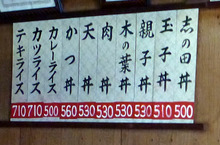 志の田丼 500
玉子丼 510
親子丼 530
木の葉丼 530
肉丼 530
天丼 530
かつ丼 560
カレーライス 500
カツライス 710
テキライス 710